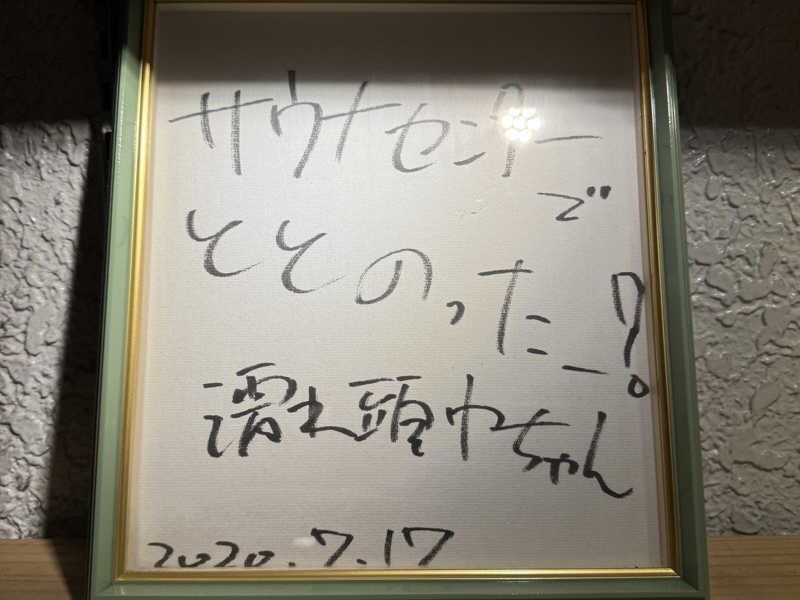 サウナセンター
で
ととのったー!
濡れ頭巾ちゃん
2020.7.17